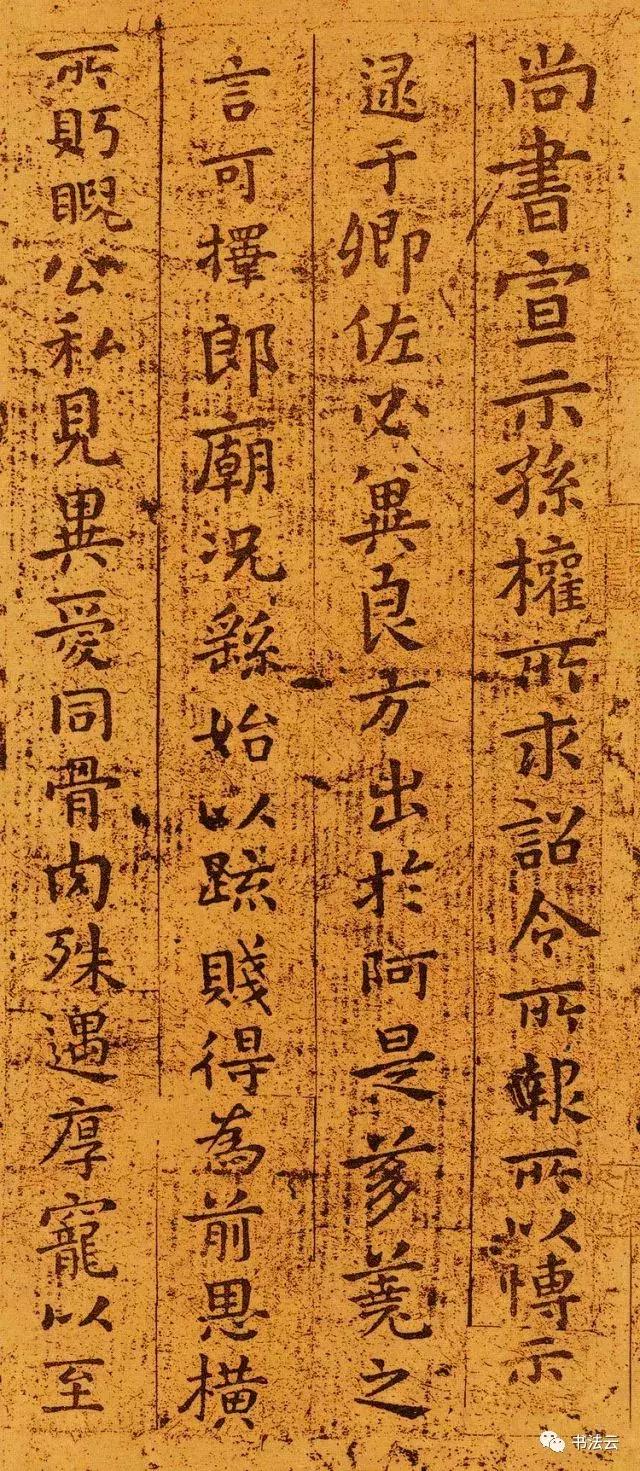 尚書宣示孫權所求詔令所報所以博示
逮于卿佐必異良方出於阿是芻蕘之
言可擇郎廟況繇始以疏賤得為前恩橫
所眄睨公私見異愛同骨肉殊遇厚寵以至
书法云